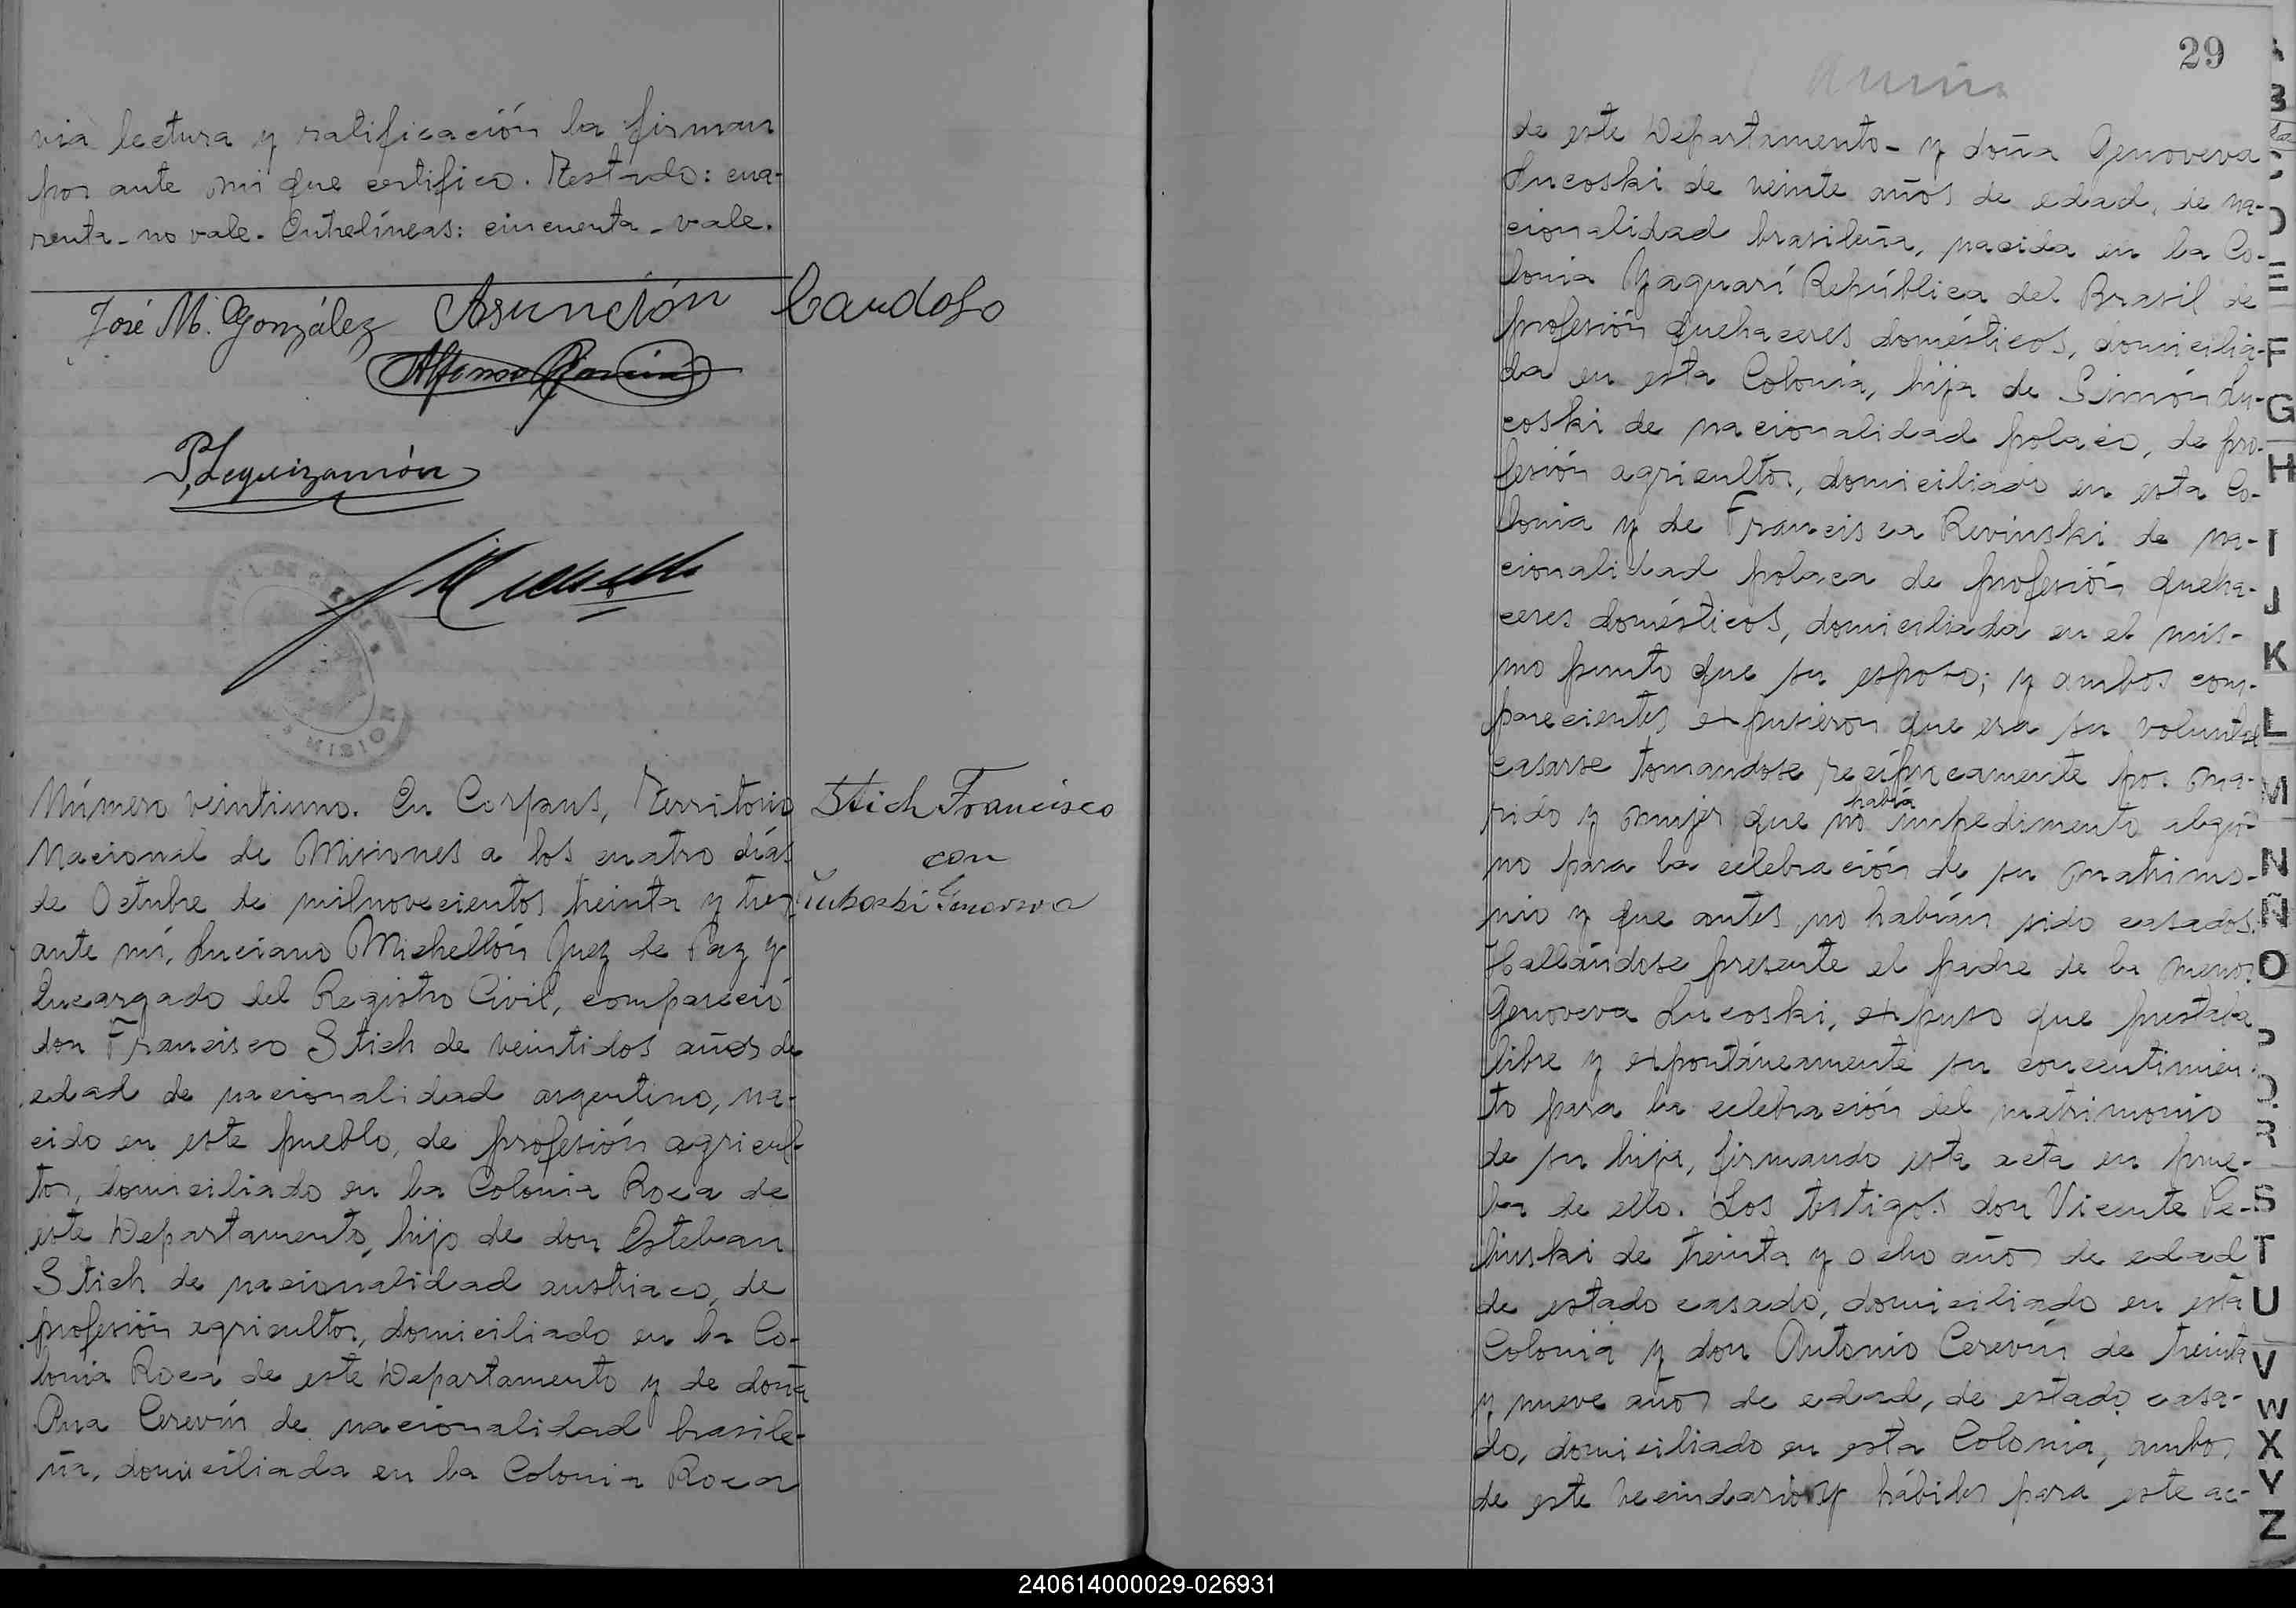 via lectura y ratificación la firman
por ante mi que certifico. Testado: cua-
renta - no vale. Entrelíneas: cincuenta - vale.
José M. González Asunción Cardoso
Alfonso
Leguizamón
MISIO
Número veintiuno. En Corpus, Territorio
Nacional de Misiones a los cuatro días
de Octubre de milnovecientos treinta y tres
ante mí, Luciano Michellón Juez de Paz y
Encargado del Registro Civil, compareció
don Francisco Stich de veintidos años de
edad de nacionalidad argentino, na-
cido en este pueblo, de profesión agricul-
tor, domiciliado en la Colonia Roca de
este Departamento, hijo de don Esteban
Stich de nacionalidad austriaco, de
profesión agricultor, domiciliado en la Co-
lonia Roca de este Departamento y de doña
Ana Cerevín de nacionalidad brasile-
ña, domiciliada en la Colonia Roca
Stich Francisco
con
Genoveva
29
de este Departamento - y doña Genoveva
Lucoski de veinte años de edad, de na-
cionalidad brasileña, nacida en la Co-
lonia Yaguarí República del Brasil de
profesión quehaceres domésticos, domicilia-
da en esta Colonia, hija de Simón Lu-
coski de nacionalidad polaco, de pro-
fesión agricultor, domiciliado en esta Co-
lonia y de Francisca Revinski de na-
cionalidad polaca de profesión queha-
ceres domésticos, domiciliada en el mis-
mo punto que su esposo; y ambos com-
parecientes expusieron que era su voluntad
casarse tomandose recíprocamente por ma-
rido y mujer que no había impedimento algu-
no para la celebración de su matrimo-
nio y que antes no habían sido casados.
Hallándose presente el padre de la menor
Genoveva Lucoski, expuso que prestaba
libre y expontáneamente su concentimien-
to para la celebración del matrimonio
de su hija, firmando esta acta en prue-
ba de ello. Los testigos don Vicente Pe-
linski de treinta y ocho años de edad
de estado casado, domiciliado en esta
Colonia y don Antonio Cerevín de treinta
y nueve años de edad, de estado casa-
do, domiciliado en esta Colonia, ambos
de este vecindario y hábiles para este ac-
B
C
D
E
F
G
H
I
J
K
L
M
N
Ñ
O
P
Q
R
S
T
U
V
W
X
Y
Z
240614000029-026931